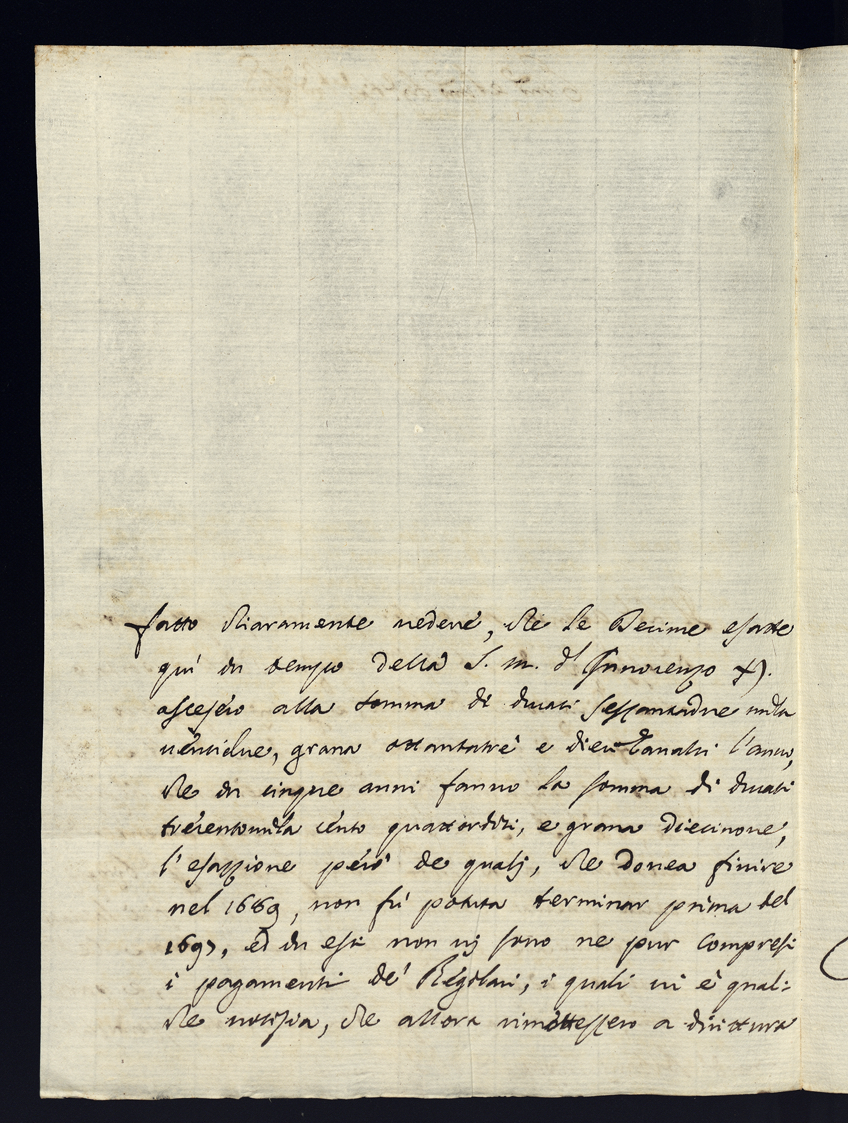 fatto chiaramente vedere, che le Decime esatte
qui in tempo della S. m. d' Innocenzo XI.
ascesero alla somma di ducati sessantadue mila
ventidue, grana ottantatrè e dieci Cavalli l'anno,
che in cinque anni fanno la somma di ducati
trecentomila cento quattordici, e grana diecinove,
l'esazzione però de quali, che dovea finire
nel 1689, non fù potuta terminar prima del
1697, ed in essi non vi sono ne pur compresi
i pagamenti de' Regolari, i quali vi è qual:
che notizia, che allora rimettessero a dirittura